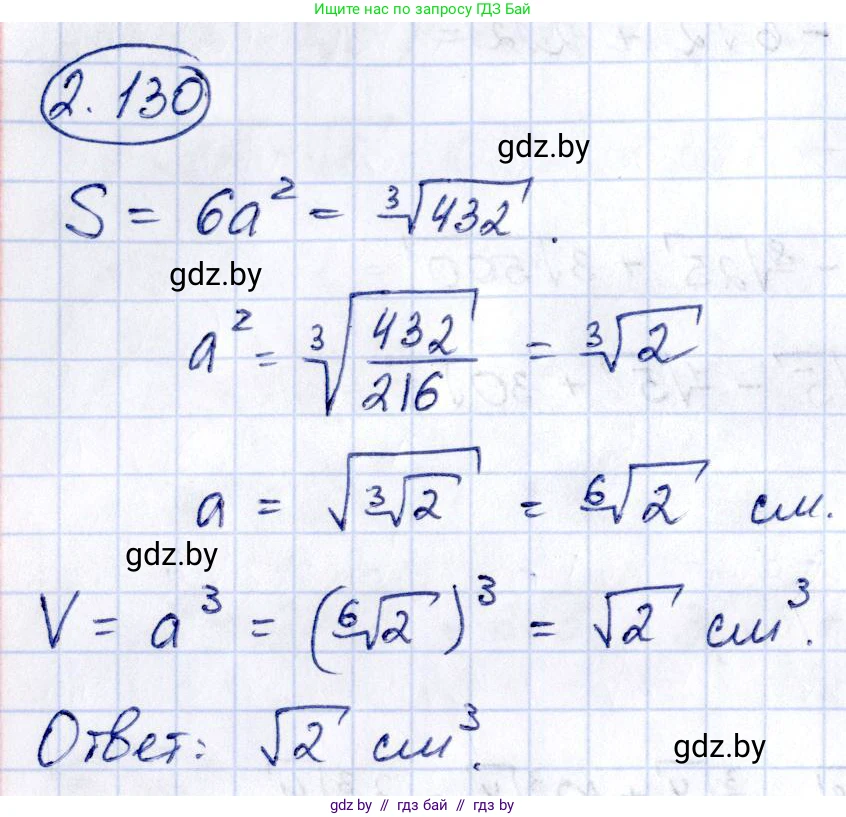 Ищите нас по запросу ГДЗ Бай
2.130
gdz.by
S = 6a² = ∛432.
gdz.by
a² = ∛(432/216) = ∛2
a = √(∛2) = ⁶√2 см.
gdz.by
V = a³ = (⁶√2)³ = √2 см³.
Ответ: √2 см³.
gdz.by
gdz by // гдз бай // гдз by